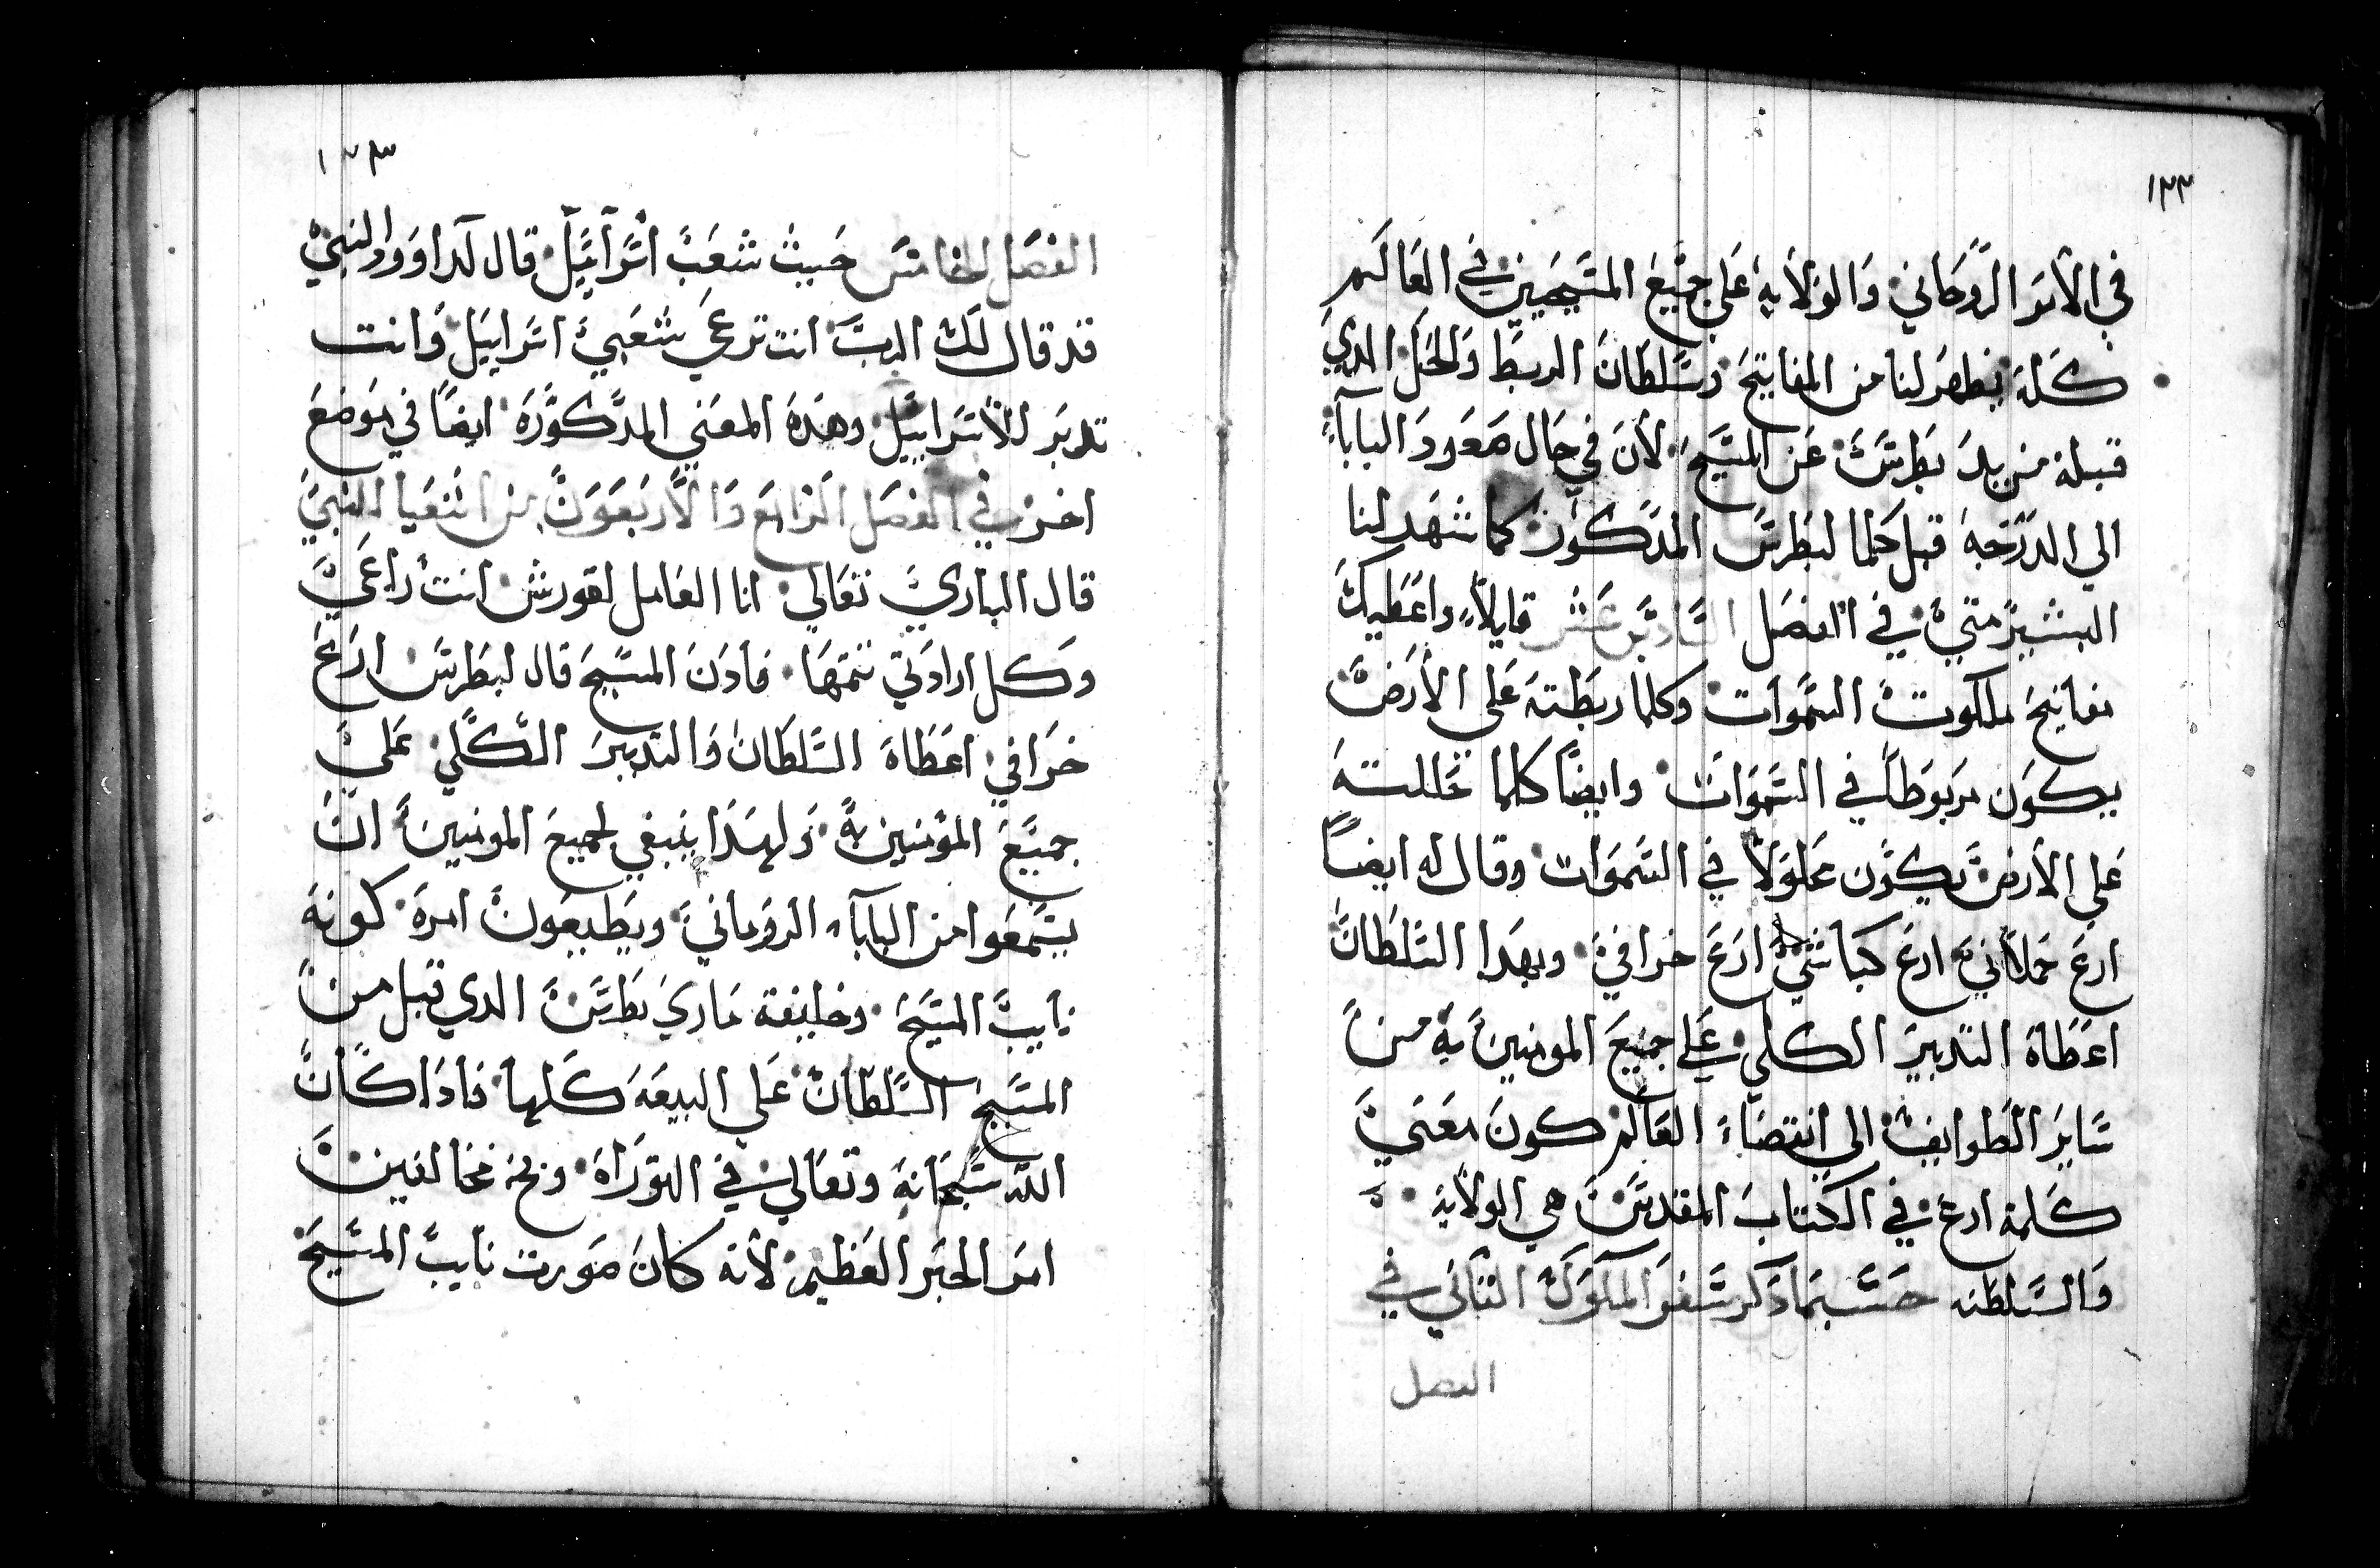 ١٣٢
في الأمر الروحاني والولاية علي جميع المسيحيين في العالم
كله يظهر لنا من المفاتيح وسلطان الربط والحل الدي
قبله من يد بطرس عن المسيح لأن في حال صعود البابا
الي الدرجة قبل كلما لبطرس المدكور كما شهد لنا
البشير متي في الفصل السادس عشر قايلاً واعطيك
مفاتيح ملكوت السموات وكلما ربطته علي الأرض
يكون مربوطاً في السموات وايضاً كلما حللته
علي الأرض يكون محلولاً في السموات وقال له ايضاً
ارع حملاني ارع كباشي ارع خرافي وبهدا السلطان
اعطاه التدبير الكلي علي جميع المومنين به من
ساير الطوايف الي انقضاء العالم كون معني
كلمة ارع في الكتاب المقدس هي الولاية
والسلطنه حسبما دكر سفر الملوك التاني في
الفصل
١٣٣
الفصل الخامس حيث شعب اسراييل قال لداوود النبي
قد قال لك الرب انت ترعي شعبي اسراييل وانت
تدبر للأسراييل وهده المعني المدكوره ايضاً في موضع
اخر في الفصل الرابع والأربعون من اشعيا النبي
قال الباري تعالي انا القايل لقورش انت راعي
وكل ارادتي تتمها فادن المسيح قال لبطرس ارع
خرافي اعطاه السلطان والتدبير الكلي علي
جميع المؤمنين به ولهدا ينبغي لجميع المومنين ان
يسمعوا من البابا الروماني ويطيعون امره كونه
نايب المسيح وخليفة ماري بطرس الدي قبل من
المسيح السلطان علي البيعه كلها فادا كان
الله سبحانه وتعالي في التوراه ونحن مخالفين
امر الحبر العظيم لأنه كان صورت نايب المسيح